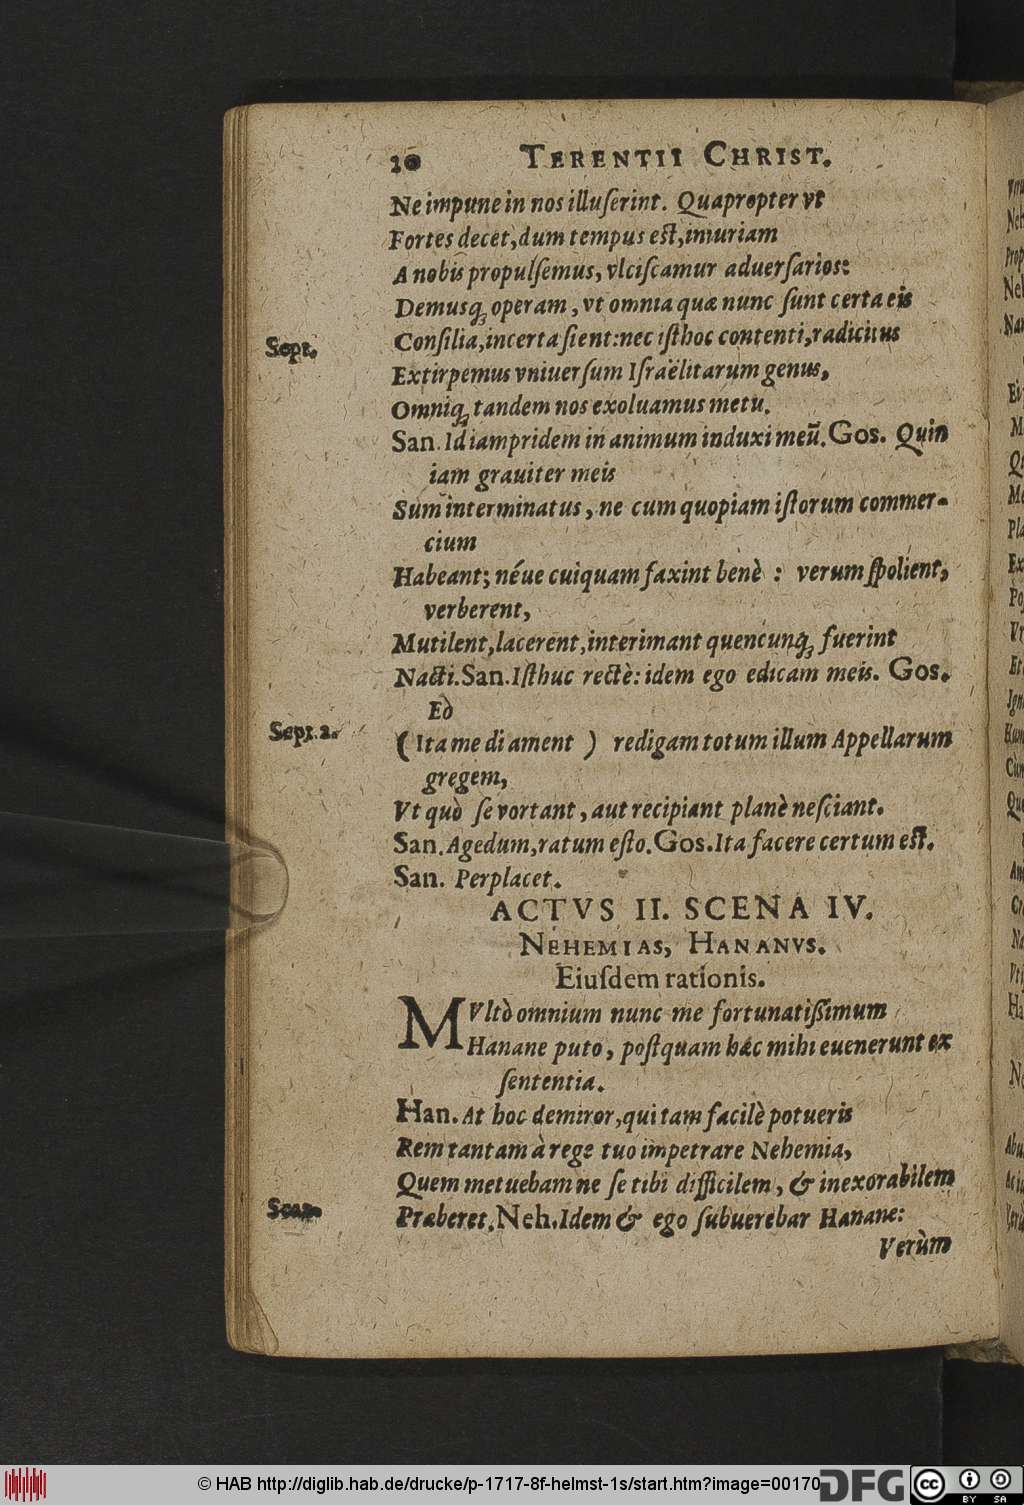 20 TERENTII CHRIST.
Ne impune in nos illuſerint. Quapropter vt
Fortes decet, dum tempus eſt, iniuriam
A nobis propulſemus, vlciſcamur aduerſarios:
Demusq; operam, vt omnia quæ nunc ſunt certa eis
Sept.
Conſilia, incerta ſient: nec iſthoc contenti, radicitus
Extirpemus vniuerſum Iſraëlitarum genus,
Omniq; tandem nos exoluamus metu.
San. Id iampridem in animum induxi meū. Gos. Quin
iam grauiter meis
Sum interminatus, ne cum quopiam iſtorum commer-
cium
Habeant; néue cuiquam faxint benè : verum ſpolient,
verberent,
Mutilent, lacerent, interimant quencunq; fuerint
Nacti. San. Iſthuc rectè: idem ego edicam meis. Gos.
Eò
Sept. 2.
( Ita me di ament ) redigam totum illum Appellarum
gregem,
Vt quò ſe vortant, aut recipiant planè neſciant.
San. Agedum, ratum eſto. Gos. Ita facere certum eſt.
San. Perplacet.
ACTVS II. SCENA IV.
NEHEMIAS, HANANVS.
Eiuſdem rationis.
MVltò omnium nunc me fortunatiſſimum
Hanane puto, poſtquam hæc mihi euenerunt ex
ſententia.
Han. At hoc demiror, qui tam facilè potueris
Rem tantam à rege tuo impetrare Nehemia,
Quem metuebam ne ſe tibi difficilem, & inexorabilem
Præberet. Neh. Idem & ego ſubuerebar Hanane:
Verùm
© HAB http://diglib.hab.de/drucke/p-1717-8f-helmst-1s/start.htm?image=00170
DFG
cc BY SA